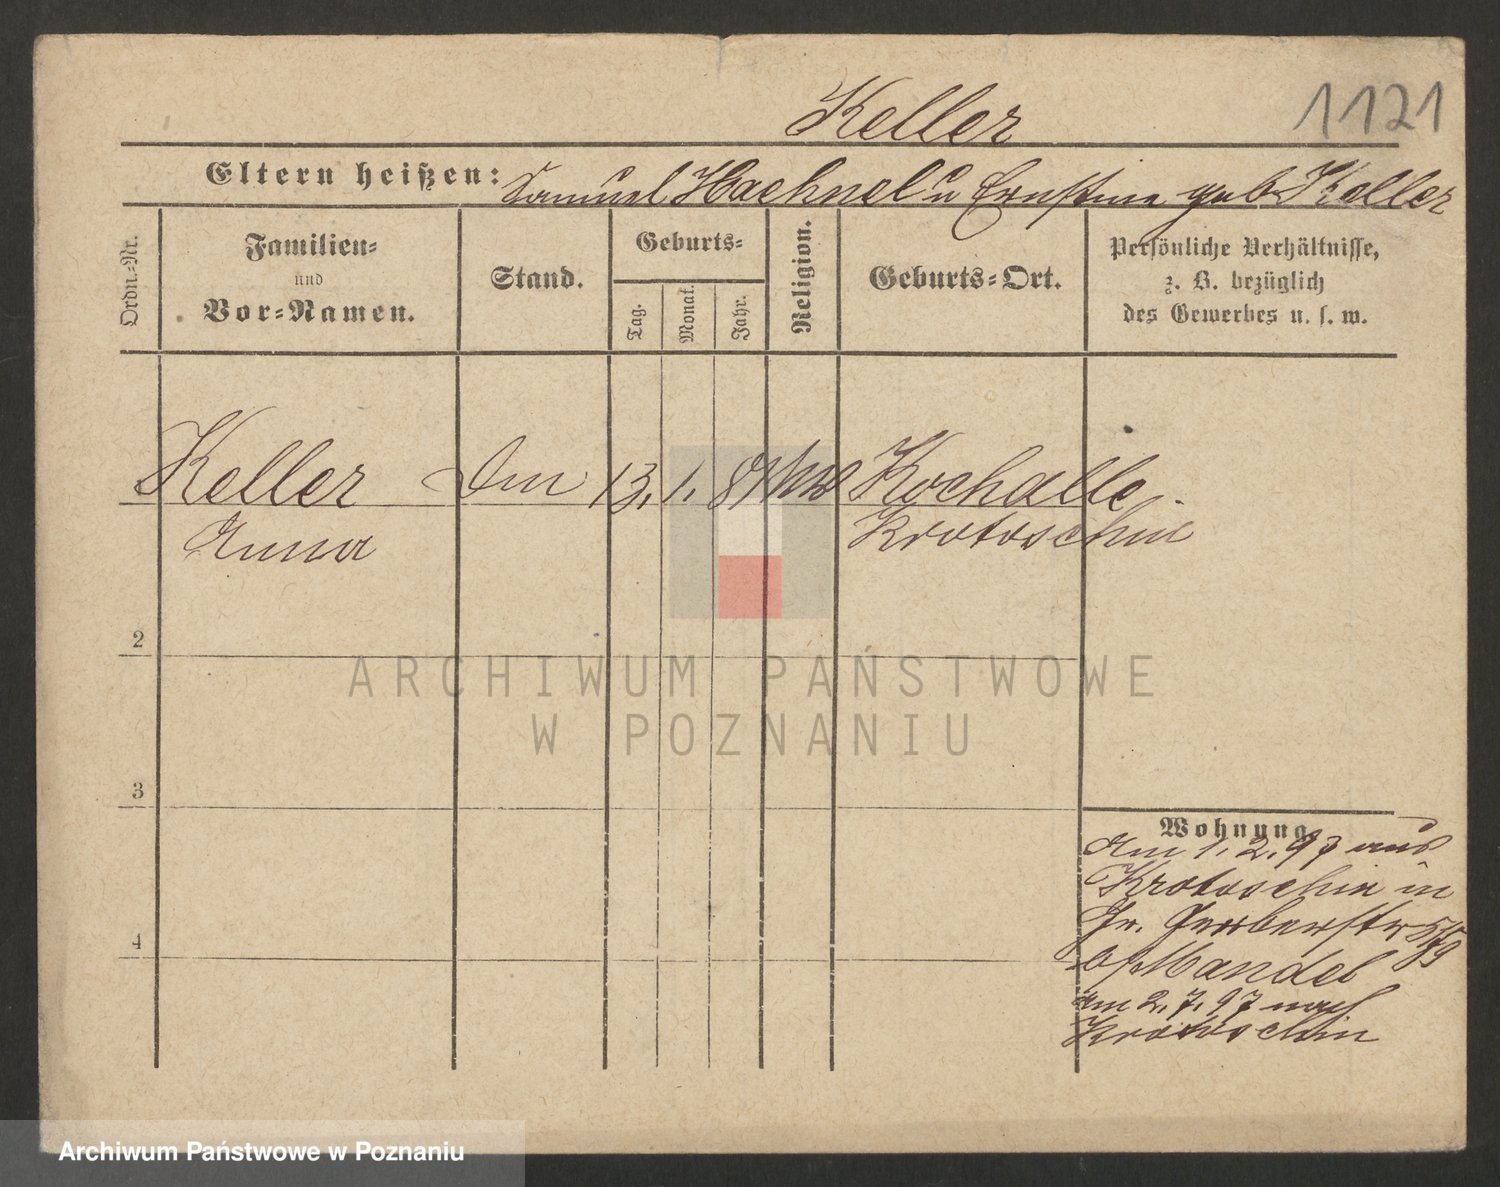 Keller
1121
Eltern heißen: Samuel Haehnel u Ernstine geb Keller
Ordn.-Nr.
Familien-
und
Vor-Namen.
Stand.
Geburts-
Tag.
Monat.
Jahr.
Religion.
Geburts-Ort.
Persönliche Verhältnisse,
z. B. bezüglich
des Gewerbes u. s. w.
Keller
Anna
13. 1.
Kochalle
Krotoschin
2
3
4
Wohnung
Am 1. 2. 97 aus
Krotoschin in
Gr. Gerberstr
b/Mandel
am 2. 7. 97 nach
Krotoschin
ARCHIWUM PAŃSTWOWE
W POZNANIU
Archiwum Państwowe w Poznaniu